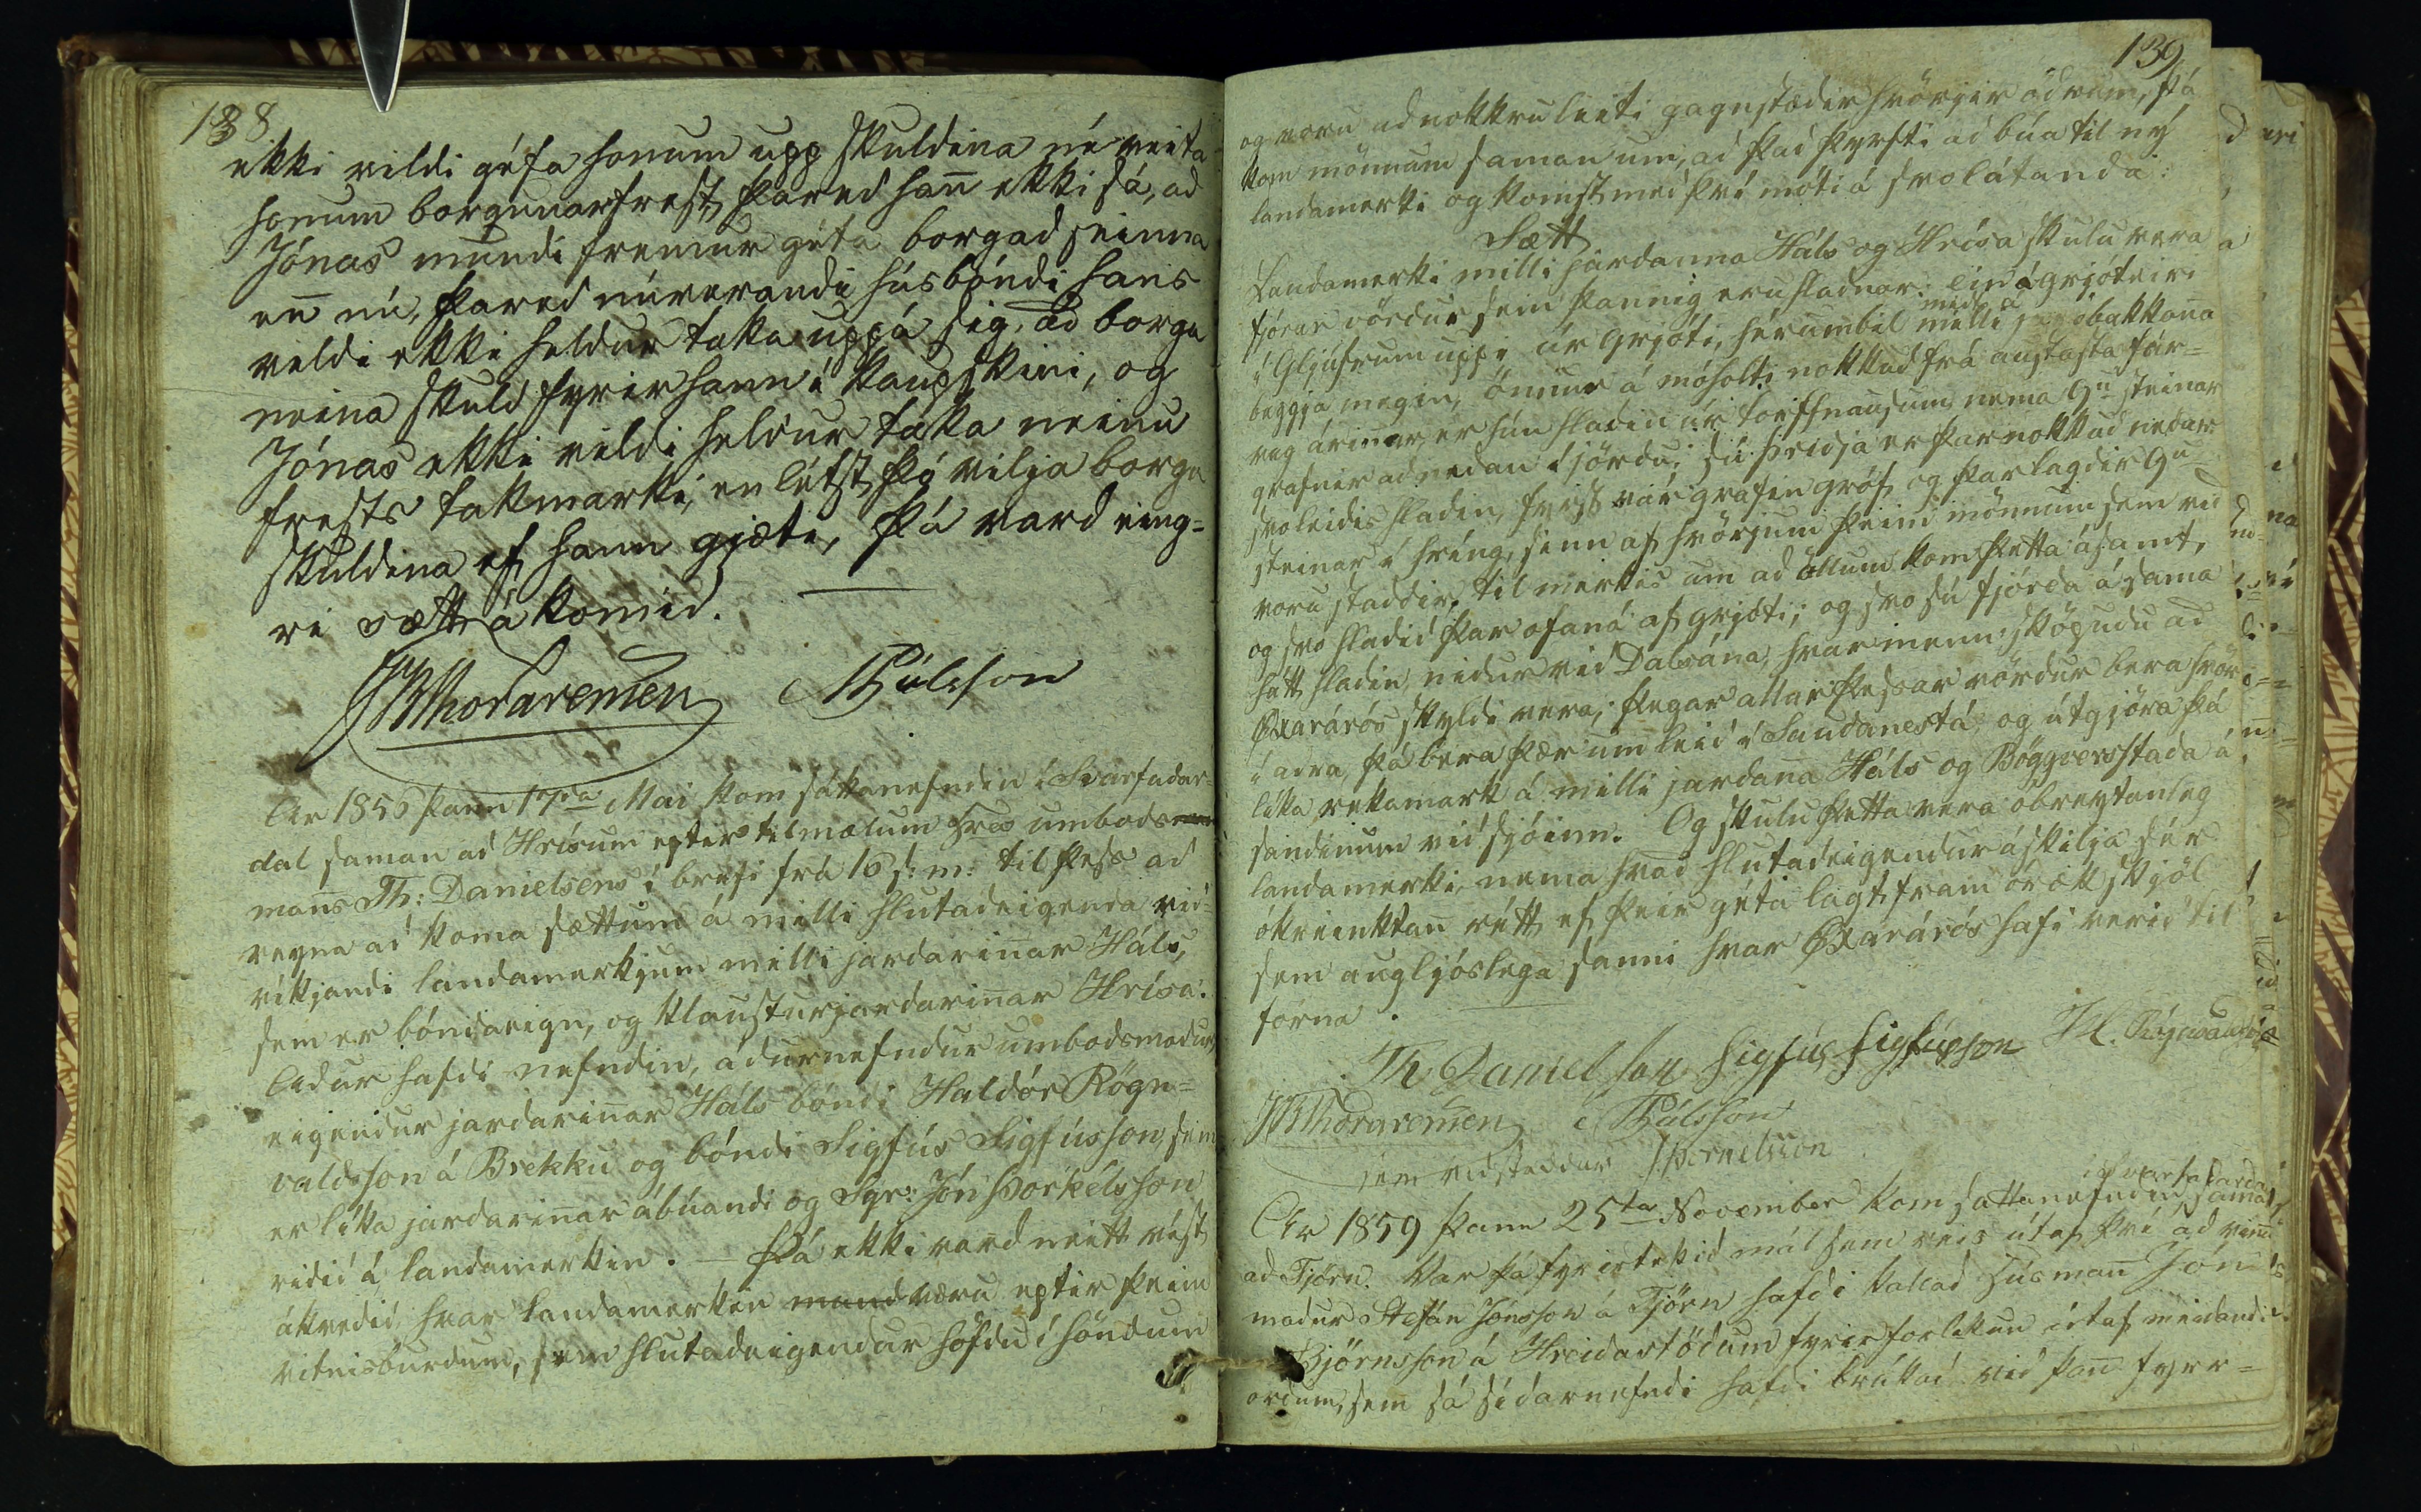 138
ekki vildi géfa honum upp skuldina né veita
honum borgunarfrest, þared han̄ ekki sá, ad
Jónas mundi fremur géta borgad seinna
en̄ nú, þared núverandi húsbóndi hans
vildi ekki heldur taka uppá sig, ad borga
neina skuld fyrir hann í kaupskini, og
Jónas ekki vildi heldur taka neinu
frests takmarki, en létst þó vilja borga
skuldina ef hann gjæti, þá vard eing=
in sætt á komid.
JBThorarensen APálsson
Ár 1856 þann 17da Mai kom sáttanefndin í Svarfadar-
dal saman ad Hrísum eptir tilmælum hrs umbods
man̄s Th: Danielsens í brefi frá 16 s: m: til þess ad
reyna ad koma sættum á milli hlutadeigenda vid-
víkjandi landamerkjum milli jardarin̄ar Háls,
sem er bóndaeign, og klausturjardarin̄ar Hrísa.
Ádur hafdi nefndin, ádurnefndur umbodsmadur,
eigendur jardarin̄ar Háls bóndi Haldór Rögn=
valdsson á Brekku og bóndi Sigfús Sigfússon, sem
er líka jardarin̄ar ábúandi og Sgr: Jón Þorkélsson
ridid á landamerkin. — Þá ekki vard neitt vist
ákvedid hvar landamerkin mund væru eptir þeim
vitnisburdum, sem hlutadeigendur höfdu í höndum
139
og voru ad nokkru leiti gagnstædir hvörjir ödrum, þá
kom mönnum saman um, ad þad þyrfti ad búa til ný
landamerki og komst med því móti á svolátandi:
Sætt
Landamerki milli jardanna Háls og Hrísa skulu vera
fjórar vördur sem þannig eru hladnar: ein á grjóteiri
í Gljúfrum uppi úr grjóti, hérumbil midt á milli bakkan̄a
beggja megin, ön̄nur á móholti nokkud frá austasta far=
veg árin̄ar, er hún hladin úr torfhnausum, nema 9u steinar
grafnir ad nedan í jördu; sú þridja er þar nokkud nedar
svoleidis hladin, fyrst var grafin gröf og þar lagdir 9u
steinar í hríng, sinn af hvörjum þeim mönnum sem vid
voru staddir, til merkis um ad öllum kom þetta ásamt,
og svo hladid þar ofaná af grjóti; og svo sú fjórda á sama
hátt hladin, nidur vid Dalsána, hvar menn sköpudu ad
Øxarárós skyldi vera; þegar allar þessar vördur bera hvör
í adra, þá bera þær um leid í Saudanestá, og útgjöra þá
líka rekamark á milli jardan̄a Háls og Böggversstada á
sandinum vid sjóinn. Og skulu þetta vera óbreytanleg
landamerki, nema hvad hlutadeigendur áskilja sér
ókreinktan rétt ef þeir géta lagt fram óræk skjöl,
sem augljóslega sanni hvar Øxarárós hafi verid til
forna.
Th Danielsson Sigfús Sigfússon H. Rögnvaldsson
JBThorarensen APálsson
sem vidstaddur JÞorkelsson
Ár 1859 þann 25ta November kom sáttanefndin í Svarfadardal saman
ad Tjörn. Var þá fyrirtekid mál sem reis útaf því ad vin̄u
madur Stefán Jónsson á Tjörn hafdi kallad húsman̄ Jón
Björnsson á Hreidarstödum fyrir forlikun útaf meidandi
ordum, sem sá sídarnefndi hafdi brúkad vid þan̄ fyrr=